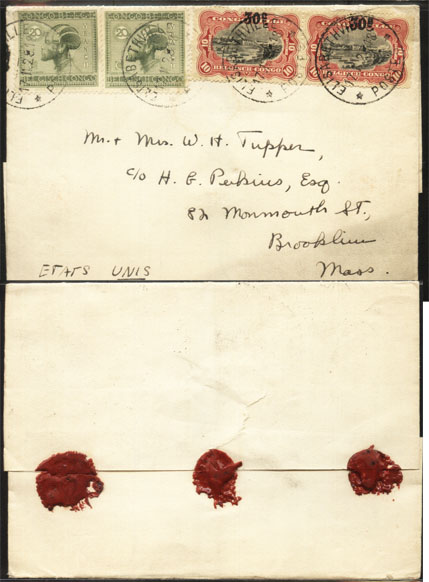 20 CONGO BELGE 20
BELGISCH CONGO
20 CONGO BELGE 20
BELGISCH CONGO
CONGO BELGE
30c
10 10
BELGISCH-CONGO
CONGO BELGE
30c
10 10
BELGISCH-CONGO
ELISABETHVILLE
★ POSTES
Mr. + Mrs. W. H. Tupper,
c/o H. E. Perkins, Esq.
82 Monmouth St.,
Brookline
Mass.
ETATS UNIS